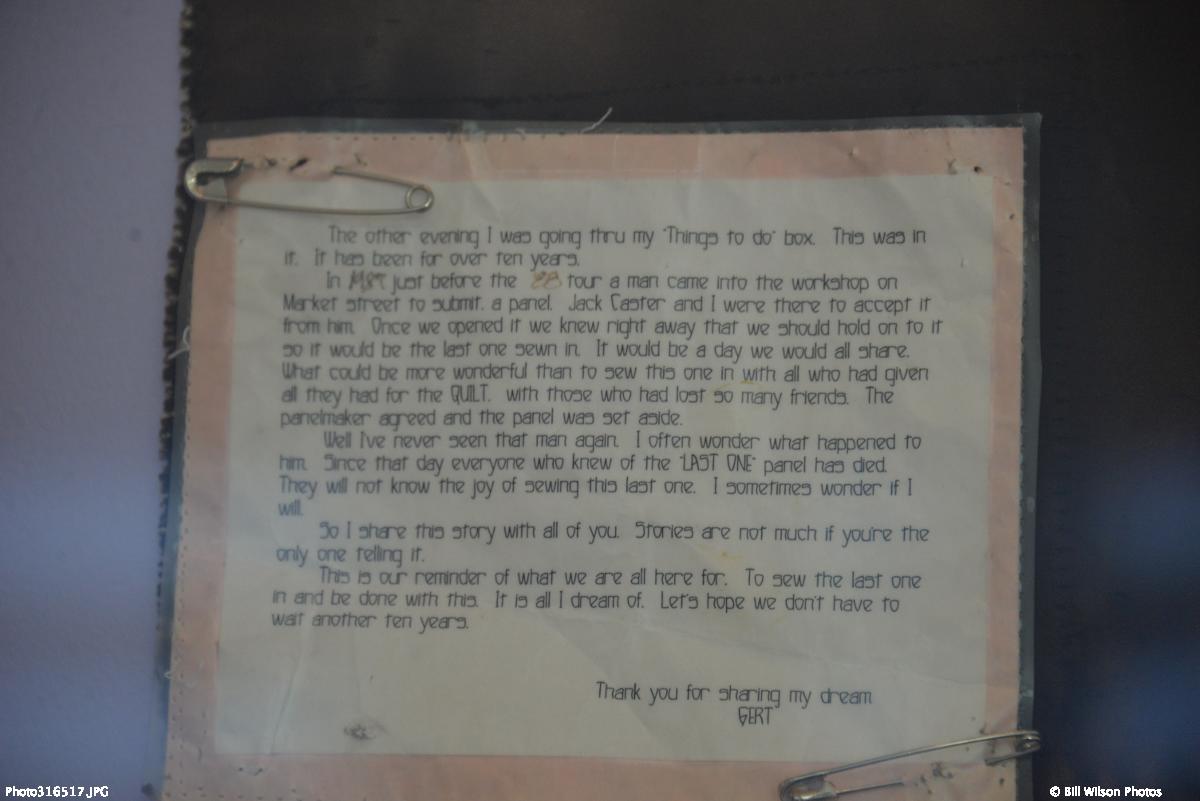 The other evening I was going thru my "Things to do" box. This was in
it. It has been for over ten years.
In just before the '88 tour a man came into the workshop on
Market street to submit. a panel. Jack Caster and I were there to accept it
from him. Once we opened it we knew right away that we should hold on to it
so it would be the last one sewn in. It would be a day we would all share.
What could be more wonderful than to sew this one in with all who had given
all they had for the QUILT. with those who had lost so many friends. The
panelmaker agreed and the panel was set aside.
Well I've never seen that man again. I often wonder what happened to
him. Since that day everyone who knew of the "LAST ONE" panel has died.
They will not know the joy of sewing this last one. I sometimes wonder if I
will.
So I share this story with all of you. Stories are not much if you're the
only one telling it.
This is our reminder of what we are all here for. To sew the last one
in and be done with this. It is all I dream of. Let's hope we don't have to
wait another ten years.
Thank you for sharing my dream
GERT
Photo316517.JPG
© Bill Wilson Photos